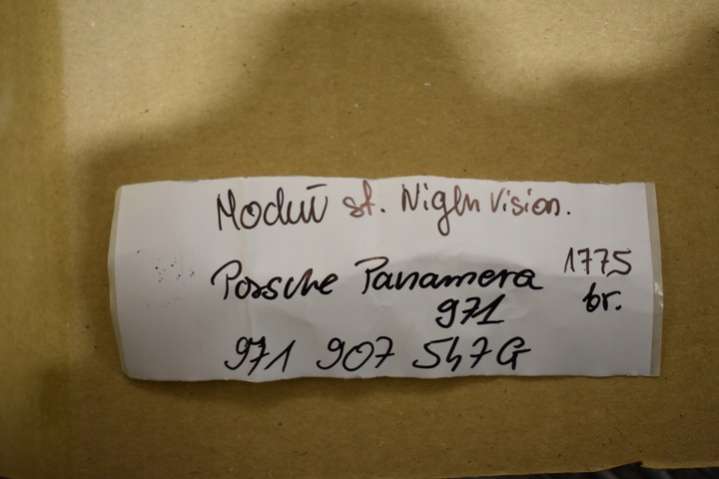 Moduł st. Night Vision.
Porsche Panamera 1775
971 br.
971 907 547G